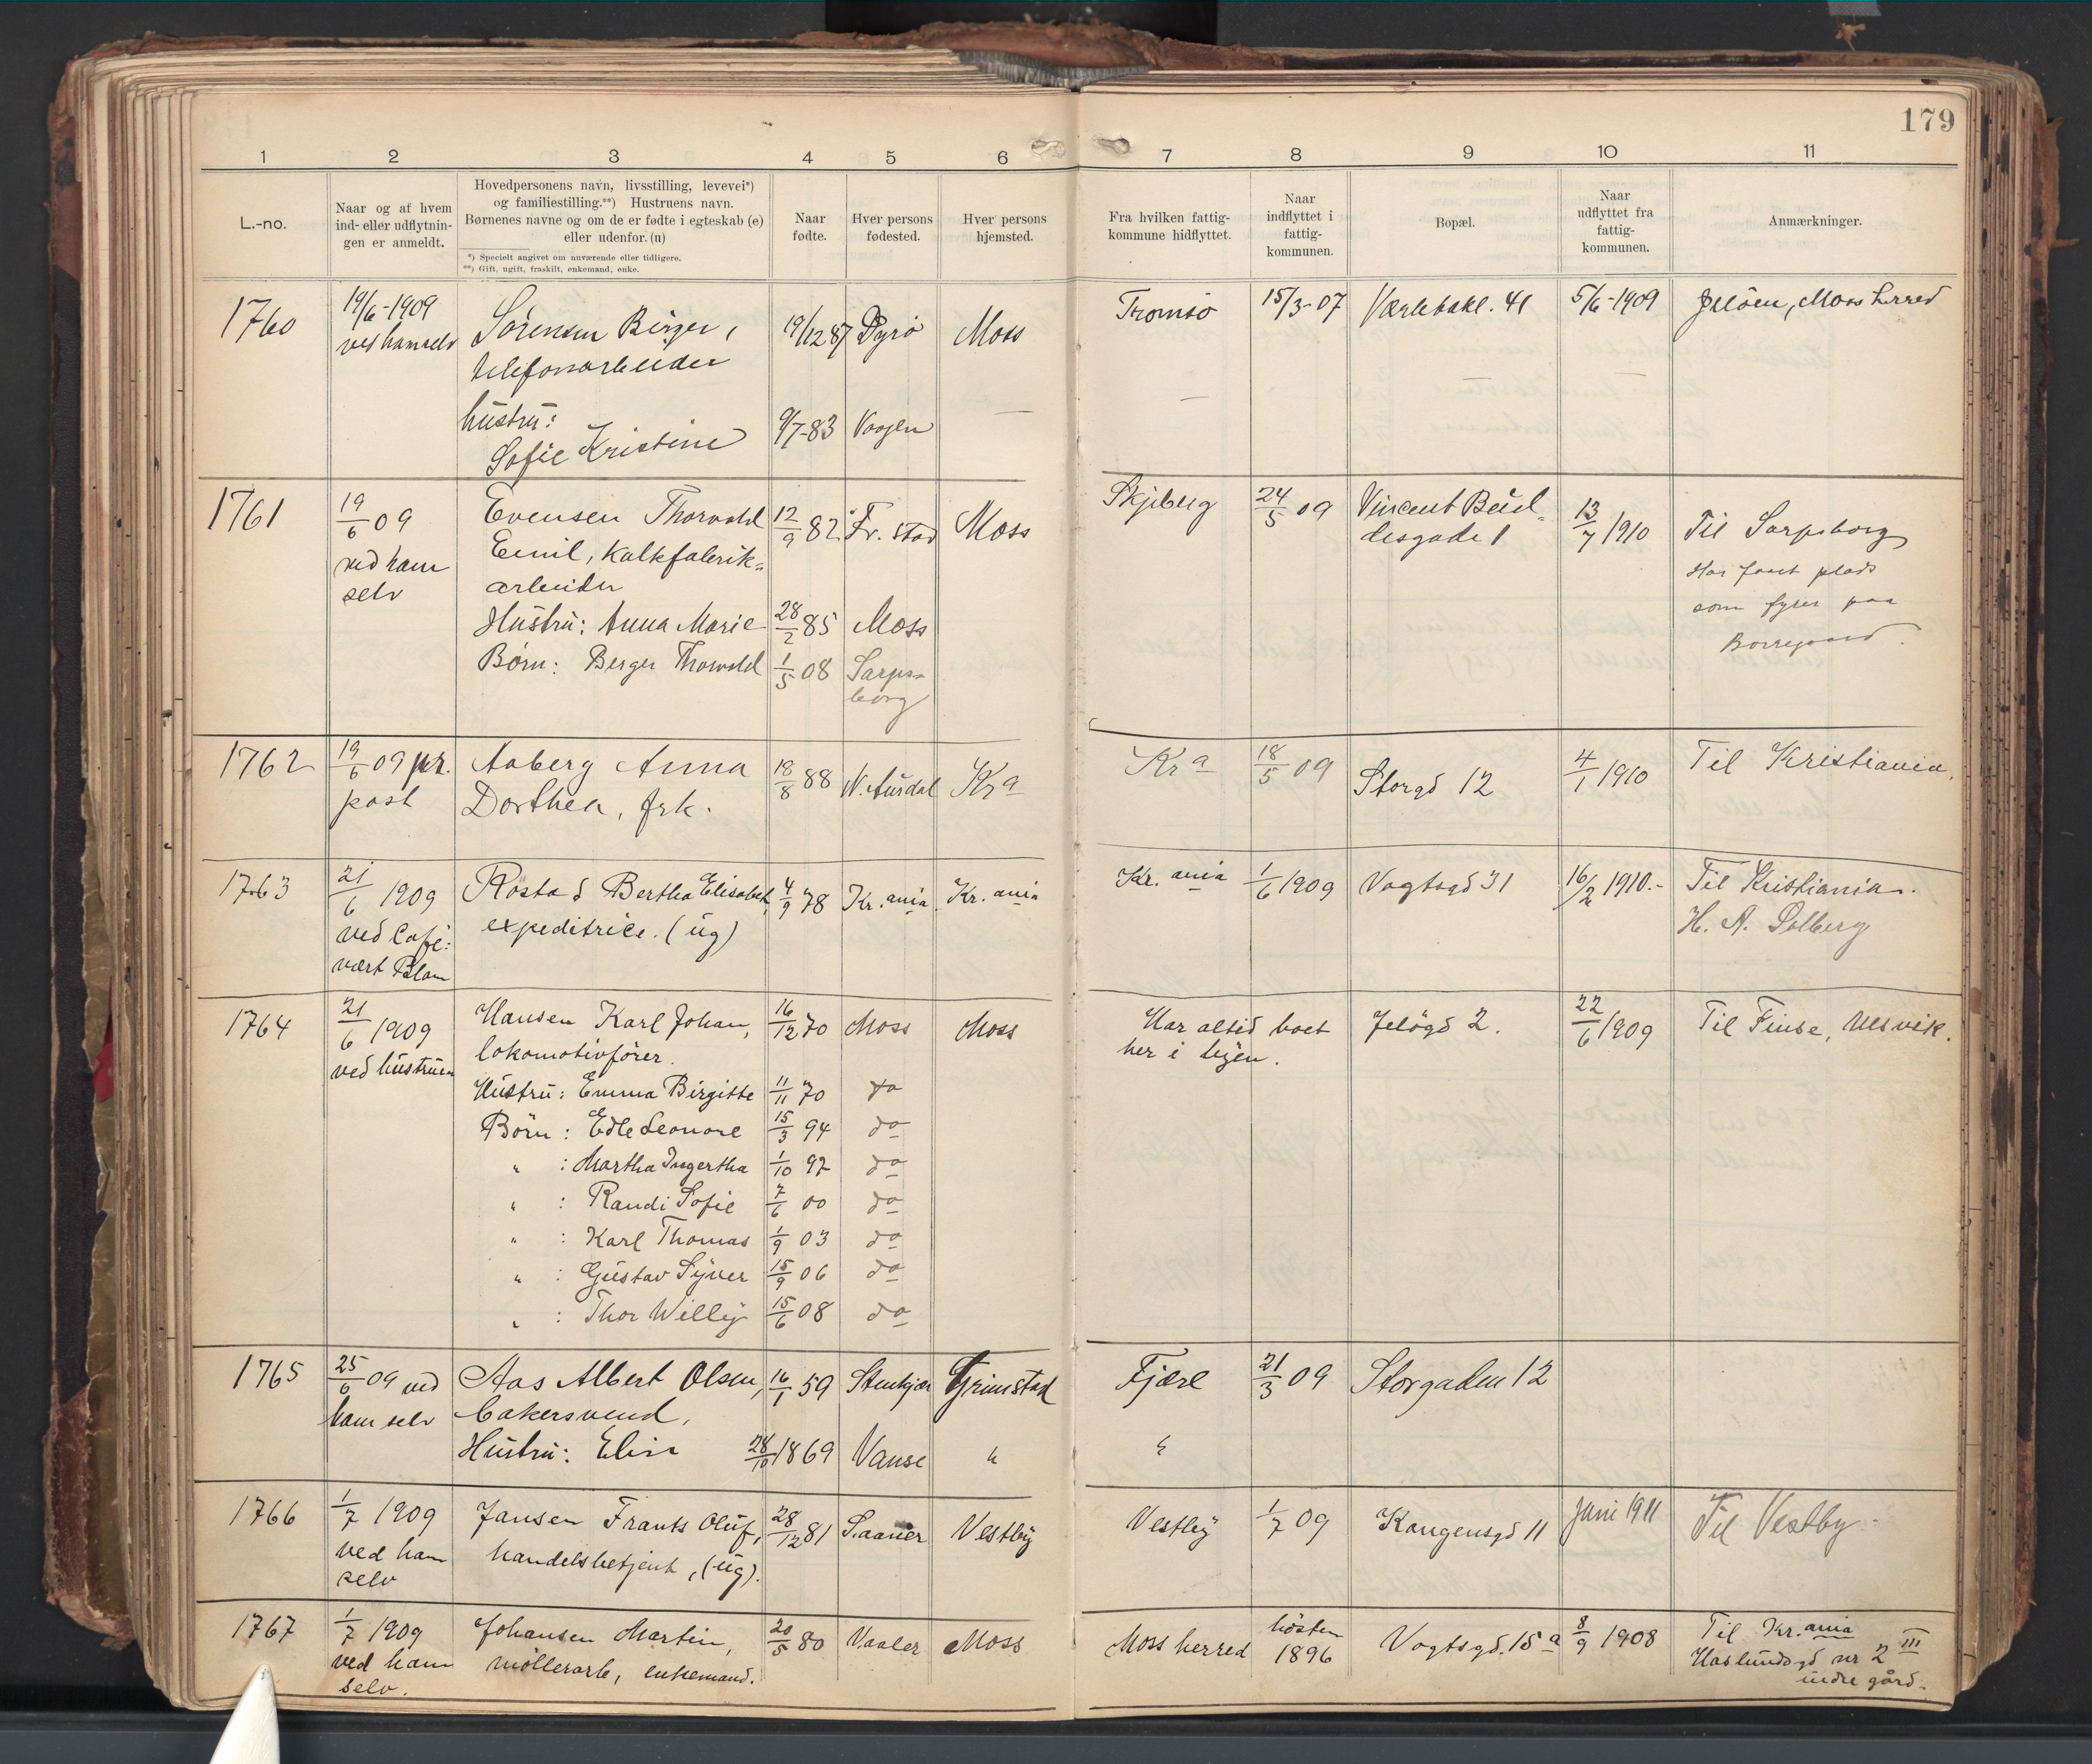 179
1 2 3 4 5 6 7 8 9 10 11
L.-no.
Naar og af hvem
ind- eller udflytnin-
gen er anmeldt.
Hovedpersonens navn, livsstilling, levevei*)
og familiestilling.**) Hustruens navn.
Børnenes navne og om de er fødte i egteskab (e)
eller udenfor. (u)
*) Specielt angivet om nuværende eller tidligere.
**) Gift, ugift, fraskilt, enkemand, enke.
Naar
fødte.
Hver persons
fødested.
Hver persons
hjemsted.
Fra hvilken fattig-
kommune hidflyttet.
Naar
indflyttet i
fattig-
kommunen.
Bopæl.
Naar
udflyttet fra
fattig-
kommunen.
Anmærkninger.
1760
19/6-1909
ved hamselv
Sørensen Birger,
telefonarbeider
hustru:
Sofie Kristine
19/12 87
9/7-83
Dyrø
Vaagen
Moss
—
Tromsø
—
15/3-07
Værlebakl. 41
—
5/6-1909
—
Jeløen, Moss herred
1761
19/6 09
ved ham
selv
Evensen Thorvald
Emil, Kalkfabrik=
arbeider
Hustru: Anna Marie
Børn: Berger Thorvald
12/9 82
28/2 85
1/5 08
Fr. stad
Moss
Sarps=
borg
Moss
Skjeberg
24/5 09
Vincent Bud=
desgade 1
13/7 1910
Til Sarpsborg
Har faaet plads
som fyrer paa
Borregaard.
1762
19/6 09 pr.
post
Aaberg Anna
Dorthea, frk.
18/8 88
N. Aurdal
Kra
Kra
18/5 09
Storgd 12
4/1 1910
Til Kristiania.
1763
21/6 1909
ved Café:
vært Blom
Røstad Bertha Elisabet,
expeditrice. (ug)
4/9 78
Kr.ania
Kr.ania
Kr.ania
1/6 1909
Vogtsgd 31
16/2 1910.-
Til Kristiania.
H. A. Solberg
1764
21/6 1909
ved hustruen
Hansen Karl Johan,
lokomotivfører.
Hustru: Emma Birgitte
Börn: Edle Leonore
" : Martha Ingertha
" : Randi Sofie
" : Karl Thomas
" : Gustav Syver
" : Thor Willy
16/12 70
11/11 70
15/3 94
1/10 97
7/6 00
1/9 03
15/9 06
15/6 08
Moss
do
do
do
do
do
do
do
Moss
Har altid boet
her i byen.
Jeløgd 2.
22/6 1909
Til Finse, Ulsvik.
1765
25/6 09 ved
ham selv
Aas Albert Olsen,
bakersvend,
Hustru: Elise
16/1 59
28/10 1869
Stenkjær
Vanse
Grimstad
"
Fjære
"
21/3 09
Storgaden 12
1766
1/7 1909
ved ham
selv
Jansen Frants Oluf,
handelsbetjent, (ug).
28/12 81
Saaner
Vestby
Vestby
1/7 09
Kongensgd 11
Juni 1911
Til Vestby.
1767
1/7 1909
ved ham
selv.
Johansen Martin,
møllerarb, enkemand.
20/5 80
Vaaler
Moss
Moss herred
høsten
1896
Vogtsgd. 15a
8/9 1908
Til Kr.ania
Haslundsgd nr 2 III
indre gård.